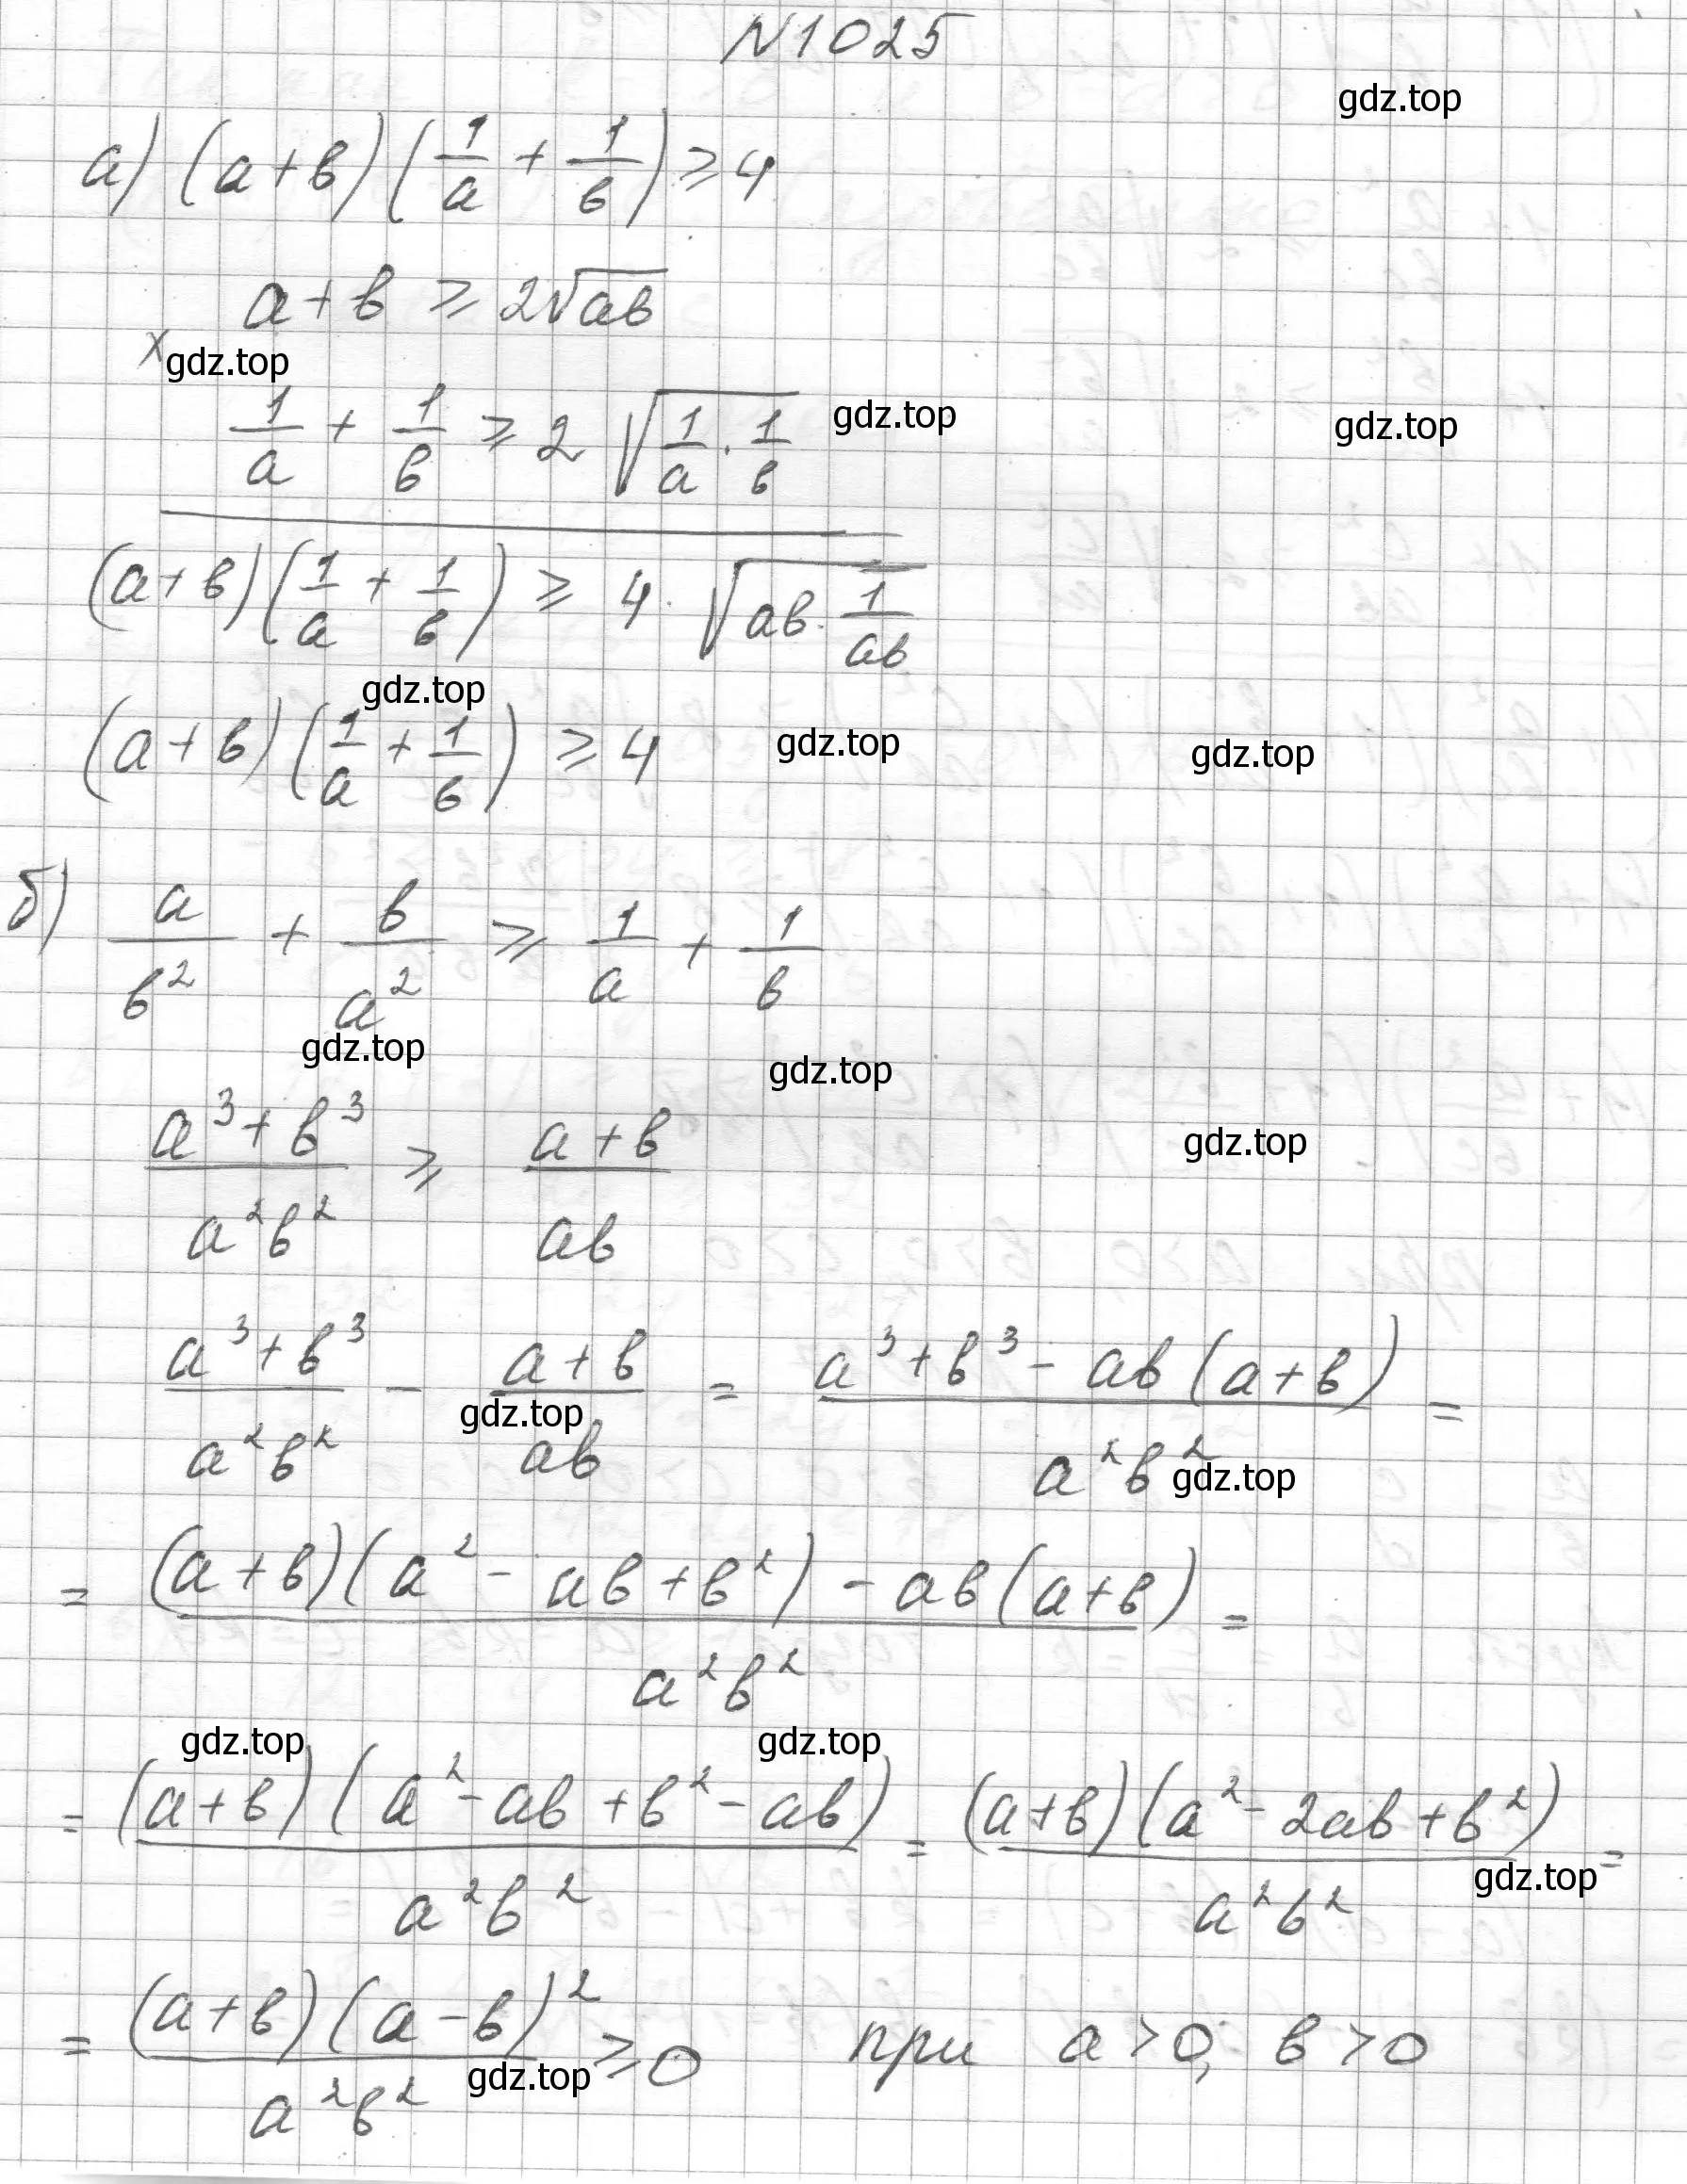 N1025
gdz.top
а) (a+b)(1/a + 1/b) ≥ 4
a+b ≥ 2√ab
×
gdz.top
1/a + 1/b ≥ 2 √(1/a · 1/b)
gdz.top
gdz.top
(a+b)(1/a + 1/b) ≥ 4 · √(ab · 1/ab)
gdz.top
(a+b)(1/a + 1/b) ≥ 4
gdz.top
gdz.top
б) a/b² + b/a² ≥ 1/a + 1/b
gdz.top
gdz.top
(a³+b³)/(a²b²) ≥ (a+b)/(ab)
gdz.top
(a³+b³)/(a²b²) - (a+b)/(ab) = (a³+b³ - ab(a+b))/(a²b²) =
gdz.top
gdz.top
= ((a+b)(a² - ab + b²) - ab(a+b))/(a²b²) =
gdz.top
gdz.top
= ((a+b)(a² - ab + b² - ab))/(a²b²) = ((a+b)(a² - 2ab + b²))/(a²b²) =
gdz.top
= ((a+b)(a-b)²)/(a²b²) ≥ 0 при a>0; b>0
gdz.top